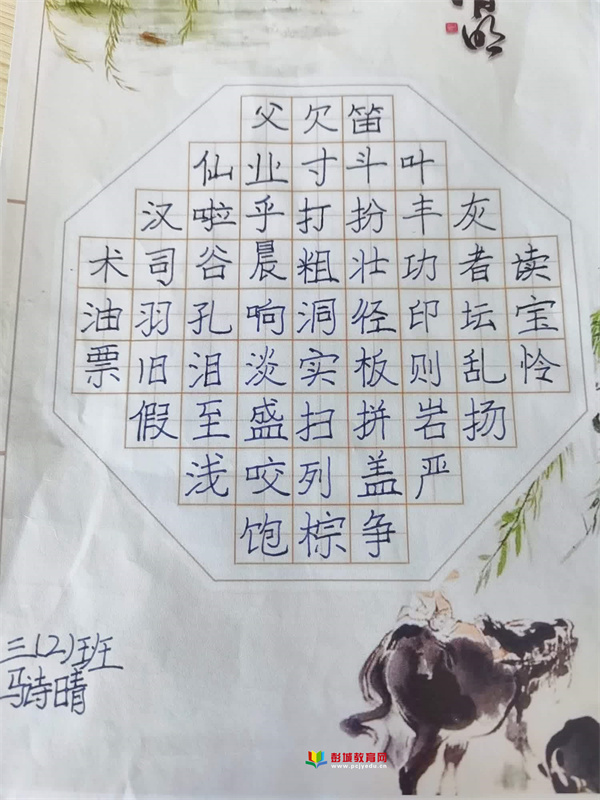 明
父欠笛
仙业寸斗叶
汉啦乎打扮丰灰
术司谷晨粗壮功者读
油羽孔响洞径印坛宝
票旧泪淡实板则乱怜
假至盛扫拼岩扬
浅咬列盖严
饱棕争
三(2)班
马诗晴
彭城教育网
www.pcjyedu.cn